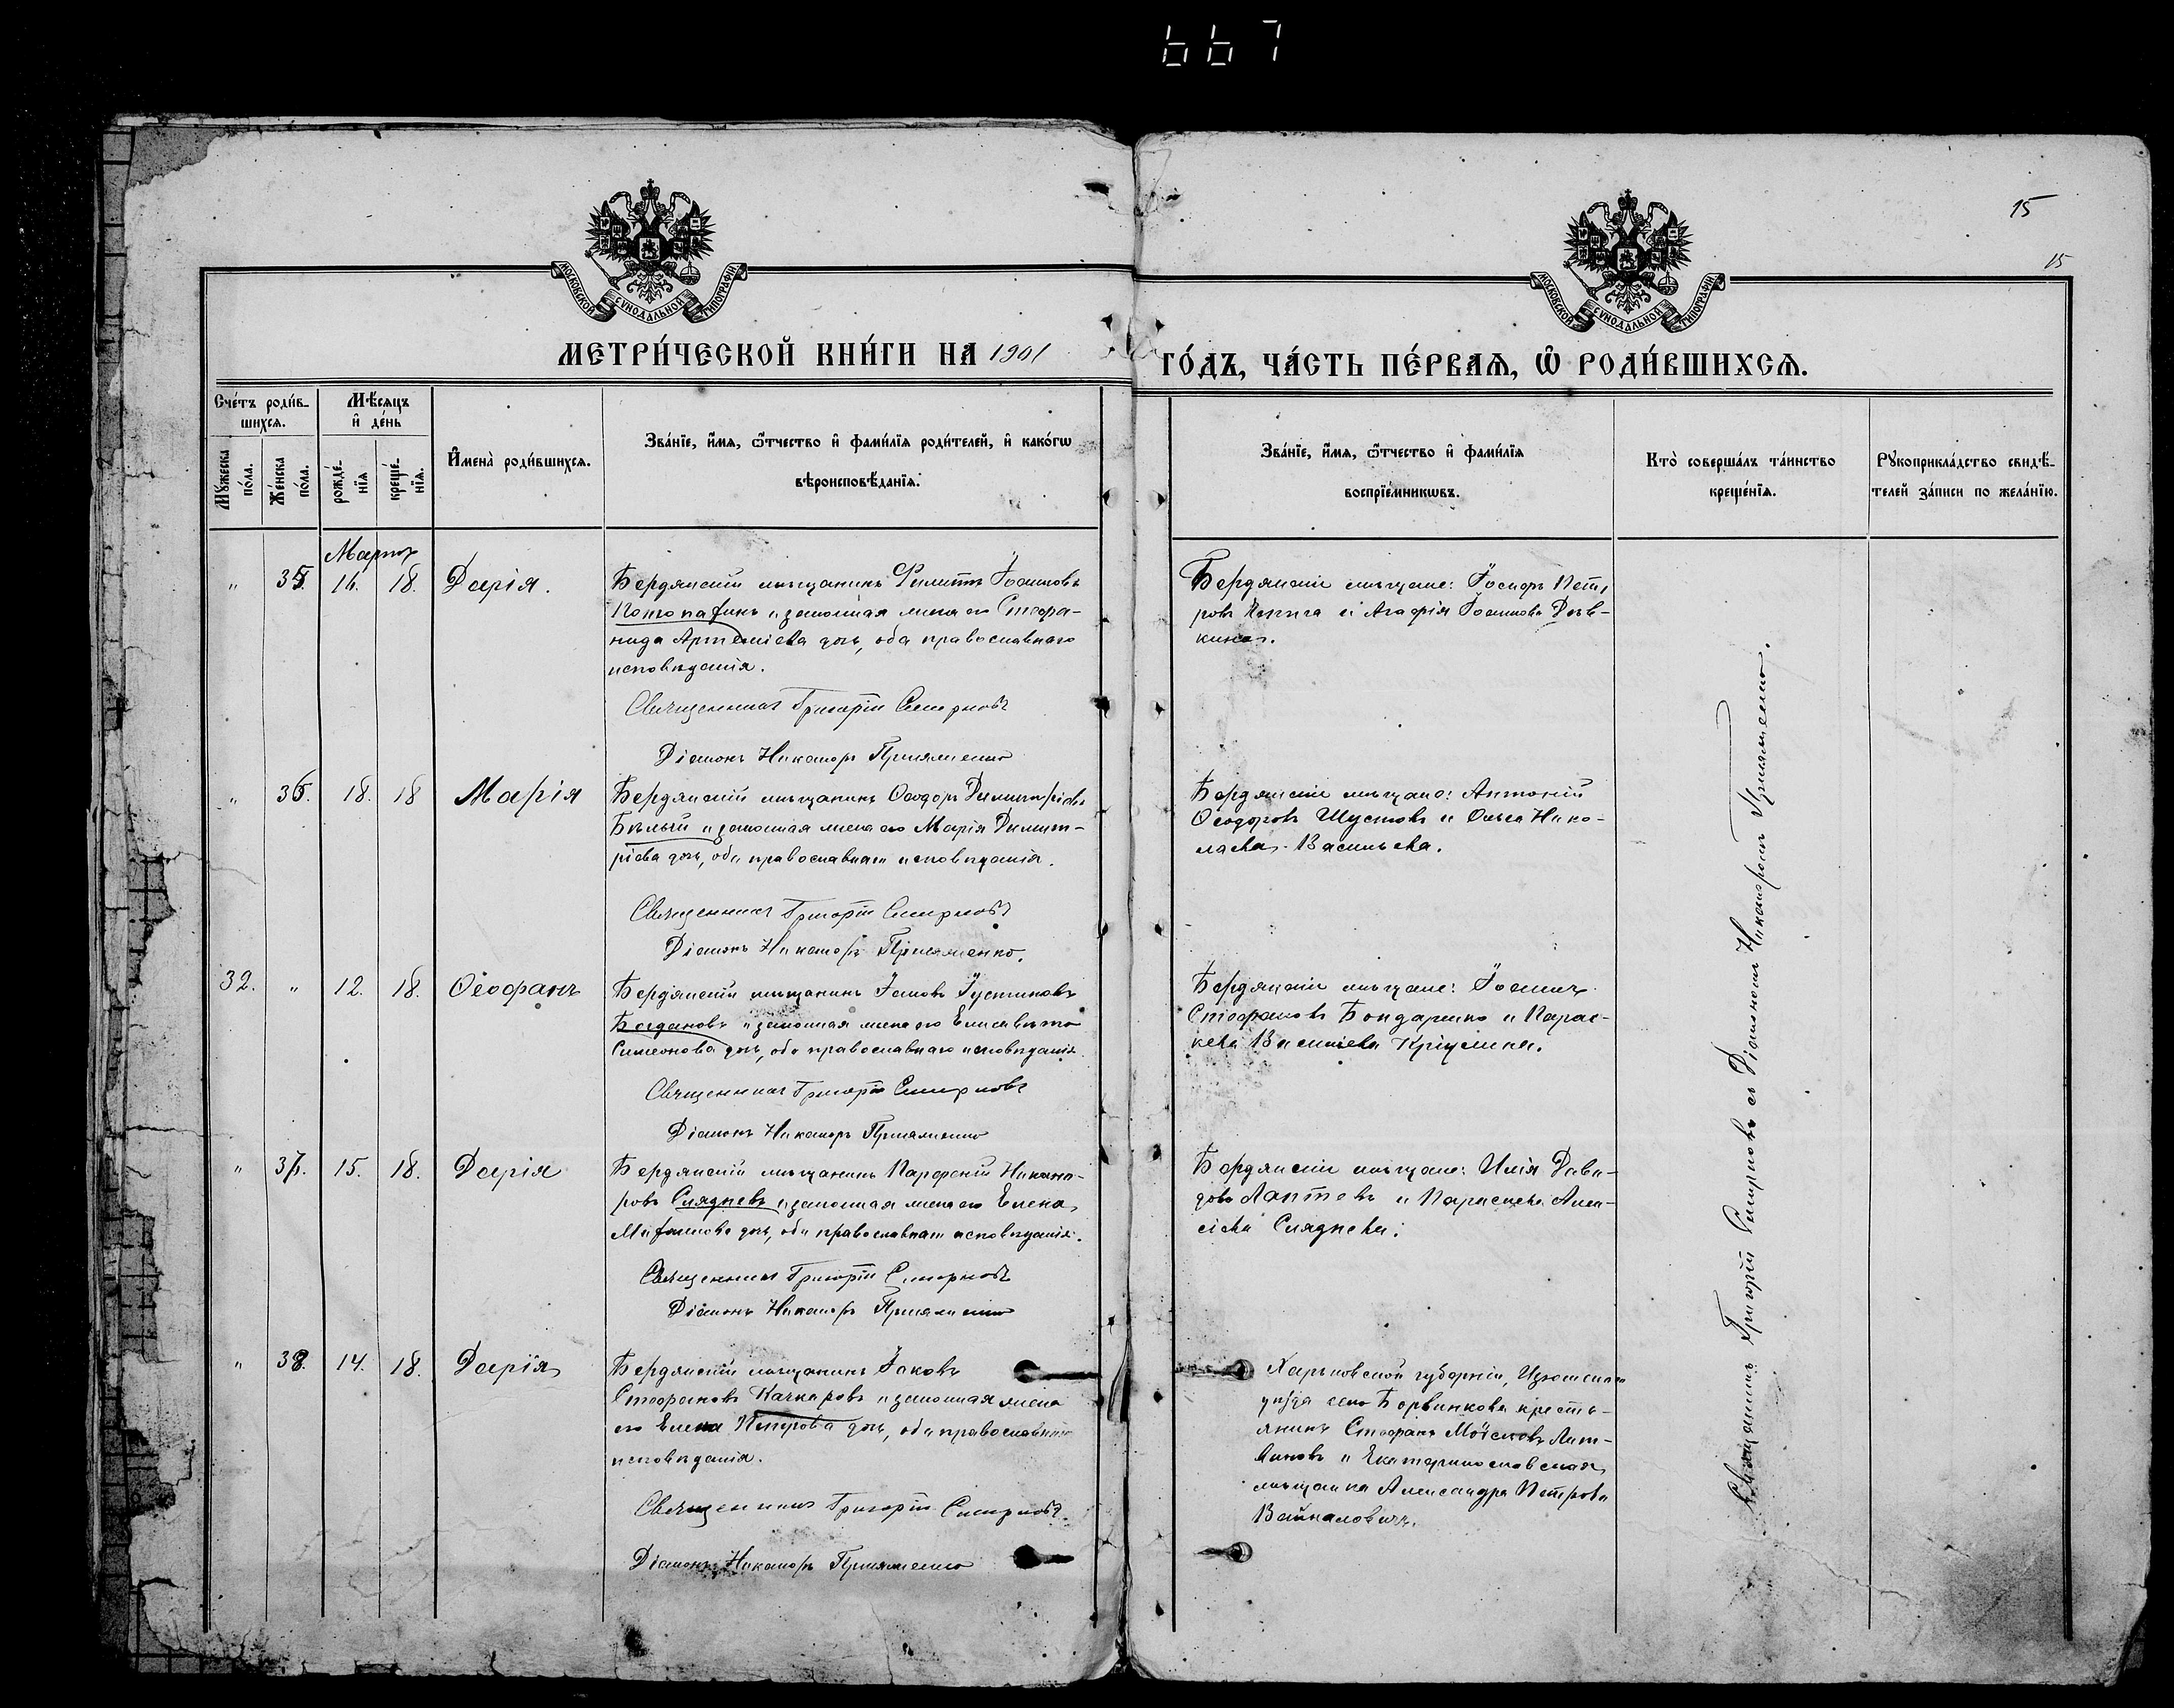 667
15
15
МОСКОВСКОЙ СУНОДАЛЬНОЙ ТИПОГРАФІИ
МОСКОВСКОЙ СУНОДАЛЬНОЙ ТИПОГРАФІИ
МЕТРИ́ЧЕСКОЙ КНИ́ГИ НА 1901
ГО́ДЪ, ЧА́СТЬ ПЕ́РВАѦ, Ѡ҆ РОДИ́ВШИХСѦ.
Сче́тъ роди́в-
шихсѧ.
Мꙋ́жеска
по́ла.
Же́нска
по́ла.
Мѣ́сѧцъ
и҆ де́нь
рожде́-
нїѧ
креще́-
нїѧ.
И҆мена̀ роди́вшихсѧ.
Зва́нїе, и҆́мѧ, ѻ҆́тчество и҆ фами́лїѧ роди́телей, и҆ како́гѡ
вѣроисповѣ́данїѧ.
Зва́нїе, и҆́мѧ, ѻ҆́тчество и҆ фами́лїѧ
воспрїе́мникѡвъ.
Кто̀ соверша́лъ та́инство
креще́нїѧ.
Рꙋкоприкла́дство свидѣ́-
телей за́писи по жела́нїю.
Мартъ
" 35. 16. 18. Дарія.
Бердянскій мѣщанинъ Филиппъ Іоанновъ
и законная жена его Стефа-
нида Артеміева дочь, оба православнаго
исповѣданія.
Священникъ Григорій Смирновъ
Діаконъ Никаноръ
Бердянскіе мѣщане: Іосифъ Пет-
ровъ и Агафія Іоаннова Дѣв-
кина.
" 36. 18. 18 Марія
Бердянскій мѣщанинъ Ѳеодоръ Димитріевъ
Бѣлый и законная жена его Марія Димит-
ріева дочь, оба православнаго исповѣданія.
Священникъ Григорій Смирновъ
Діаконъ Никаноръ
Бердянскіе мѣщане: Антоній
Ѳеодоровъ Шустовъ и Ольга Нико-
лаева Васильева.
32. " 12. 18. Ѳеофанъ
Бердянскій мѣщанинъ Іаковъ Іустиновъ
Богдановъ и законная жена его Елисавета
Симеонова дочь, оба православнаго исповѣданія.
Священникъ Григорій Смирновъ
Діаконъ Никаноръ
Бердянскіе мѣщане: Іоаннъ
Стефановъ Бондаренко и Парас-
кева Василіева
" 37. 15. 18. Дарія
Бердянскій мѣщанинъ Парфеній Никано-
ровъ Слядневъ и законная жена его Елена
дочь, оба православнаго исповѣданія.
Священникъ Григорій Смирновъ
Діаконъ Никаноръ
Бердянскіе мѣщане: Илія Дави-
довъ Лаптевъ и Параскева Алек-
сіева Сляднева.
" 38. 14. 18. Дарія
Бердянскій мѣщанинъ Іаковъ
Стефановъ Качкаровъ и законная жена
его Елена Петрова дочь, оба православнаго
исповѣданія.
Священникъ Григорій Смирновъ.
Діаконъ Никаноръ
Харьковской губерніи, Изюмскаго
уѣзда села Борвинкова кресть-
янинъ Стефанъ Моѵсеевъ Лит-
виновъ и Екатеринославская
мѣщанка Александра Петрова
Священникъ Григорій Смирновъ съ Діакономъ Никаноромъ